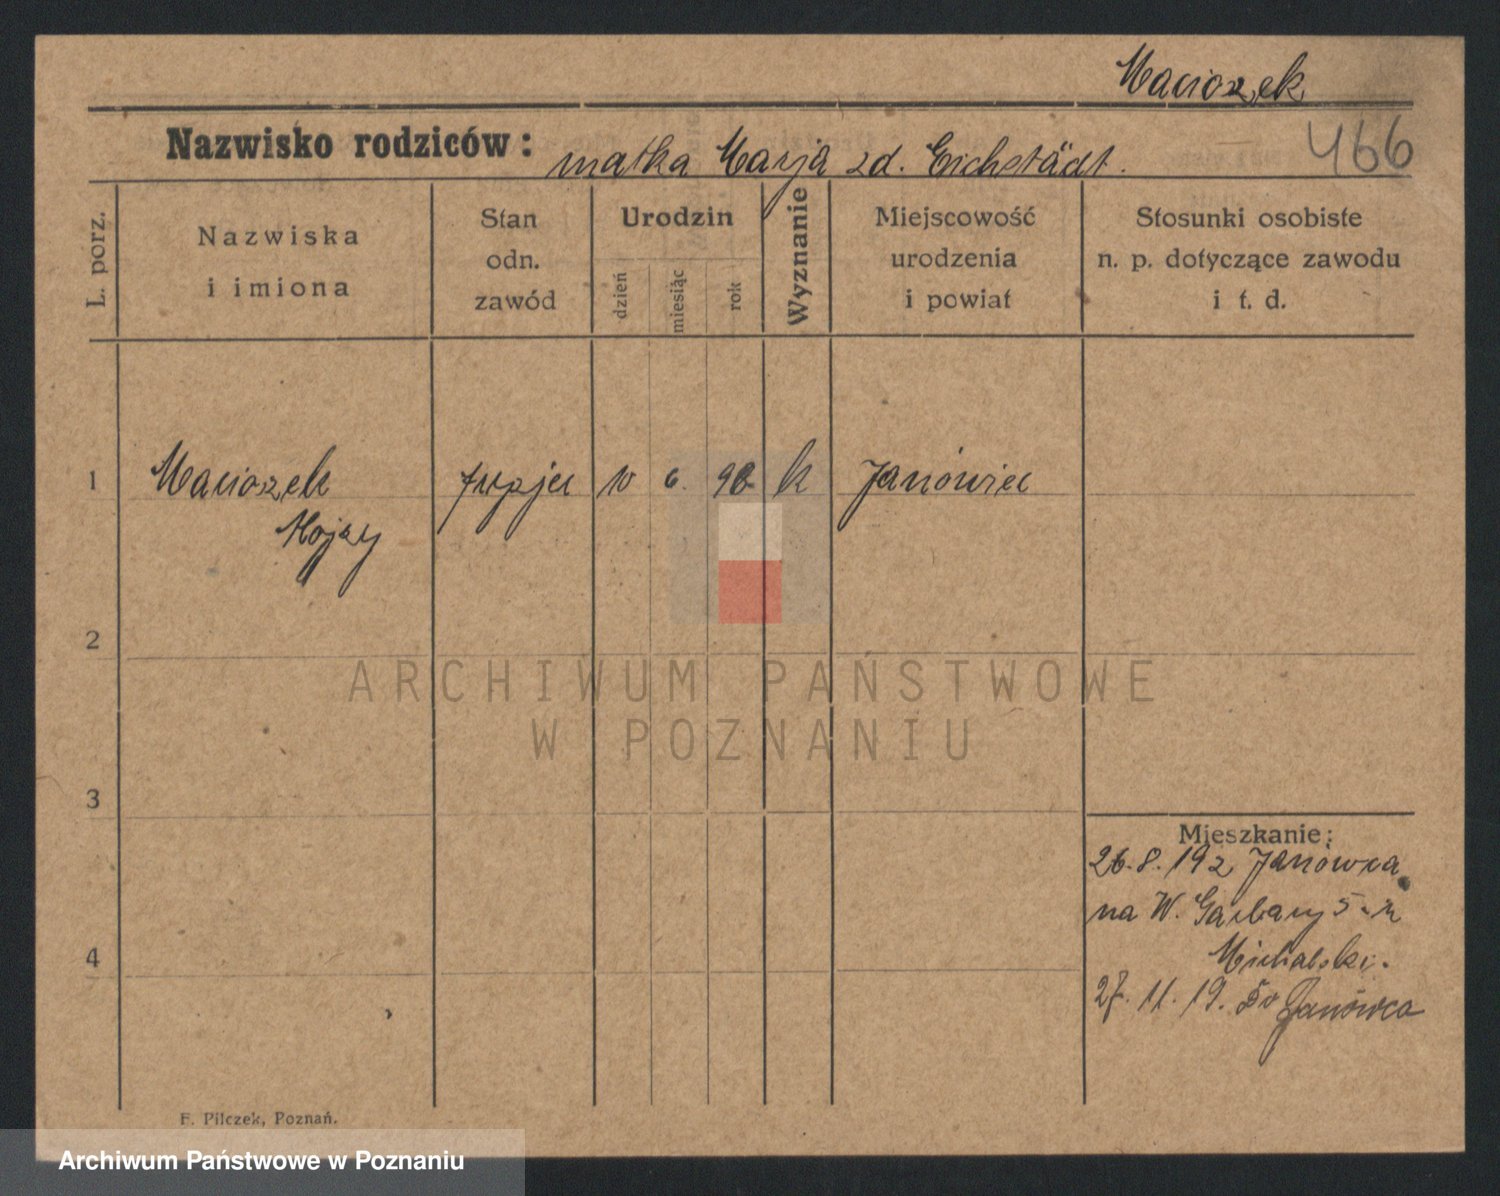 Macioszek
Nazwisko rodziców: matka Marja zd. Eichstädt.
466
L. porz.
Nazwiska
i imiona
Stan
odn.
zawód
Urodzin
dzień
miesiąc
rok
Wyznanie
Miejscowość
urodzenia
i powiat
Stosunki osobiste
n. p. dotyczące zawodu
i t. d.
1
Macioszek
10
6.
98
k
Janówiec
2
ARCHIWUM PAŃSTWOWE
W POZNANIU
3
Mieszkanie:
26.8.19 z Janówca
na W. Garbary 5
Michalski.
4
27. 11. 19. do Janówca
F. Pilczek, Poznań.
Archiwum Państwowe w Poznaniu